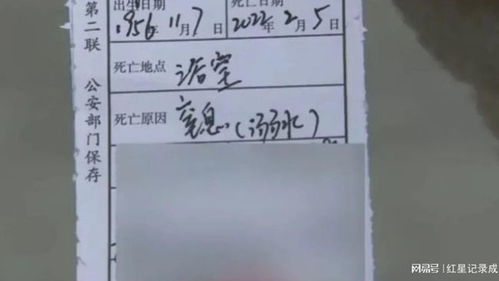 第二联 公安部门保存
出生日期 死亡日期
1956年11月7日 2022年2月5日
死亡地点 浴室
死亡原因 窒息(溺水)
网易号 | 红星记录成